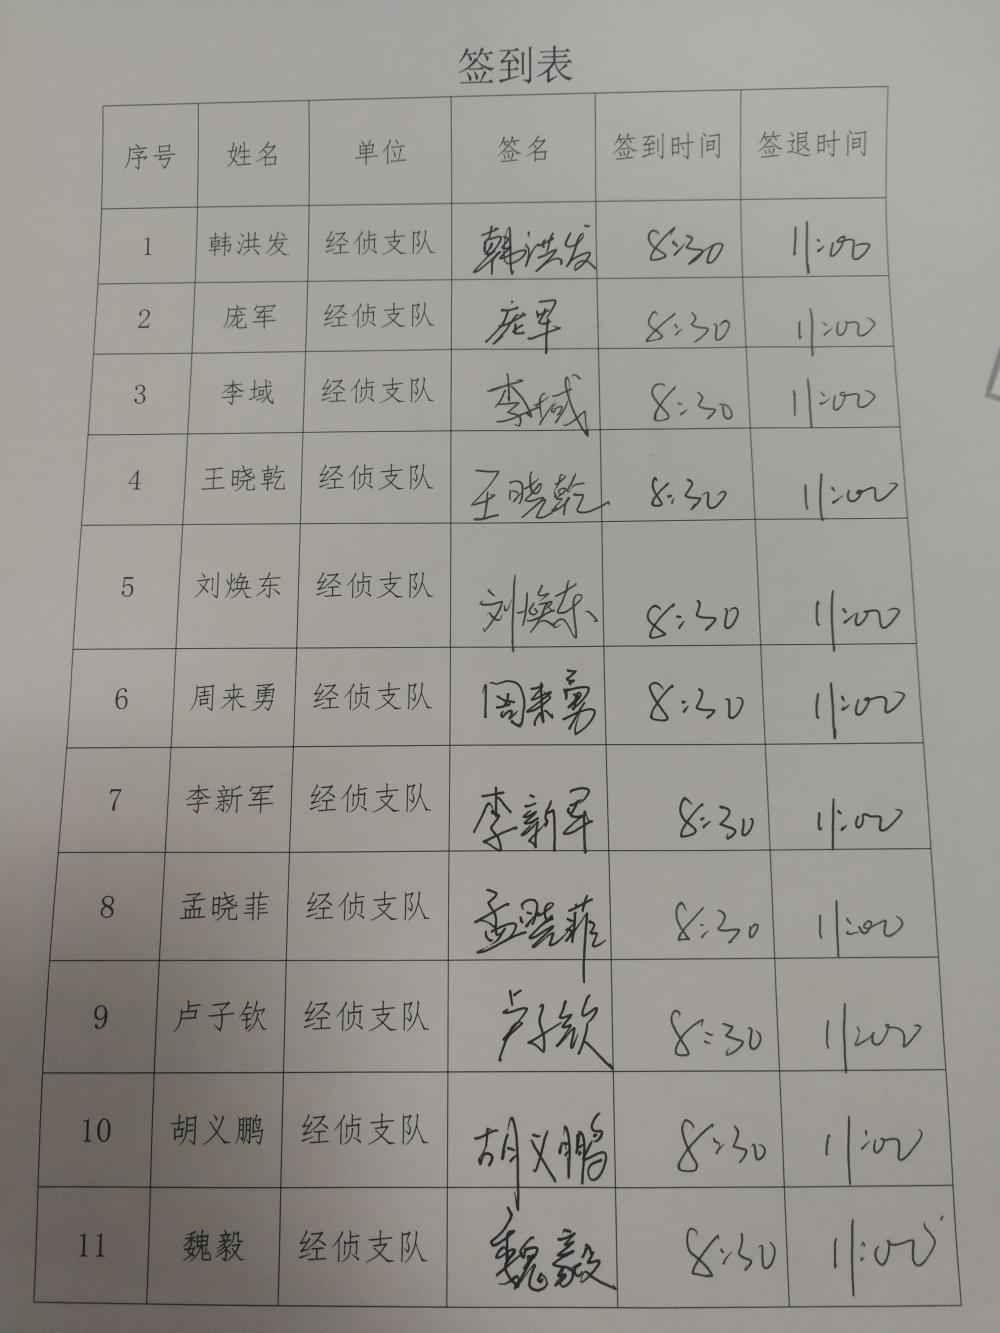 签到表
序号 姓名 单位 签名 签到时间 签退时间
1 韩洪发 经侦支队 韩洪发 8:30 11:00
2 庞军 经侦支队 庞军 8:30 11:00
3 李域 经侦支队 李域 8:30 11:00
4 王晓乾 经侦支队 王晓乾 8:30 11:00
5 刘焕东 经侦支队 刘焕东 8:30 11:00
6 周来勇 经侦支队 周来勇 8:30 11:00
7 李新军 经侦支队 李新军 8:30 11:00
8 孟晓菲 经侦支队 孟晓菲 8:30 11:00
9 卢子钦 经侦支队 卢子钦 8:30 11:00
10 胡义鹏 经侦支队 胡义鹏 8:30 11:00
11 魏毅 经侦支队 魏毅 8:30 11:00